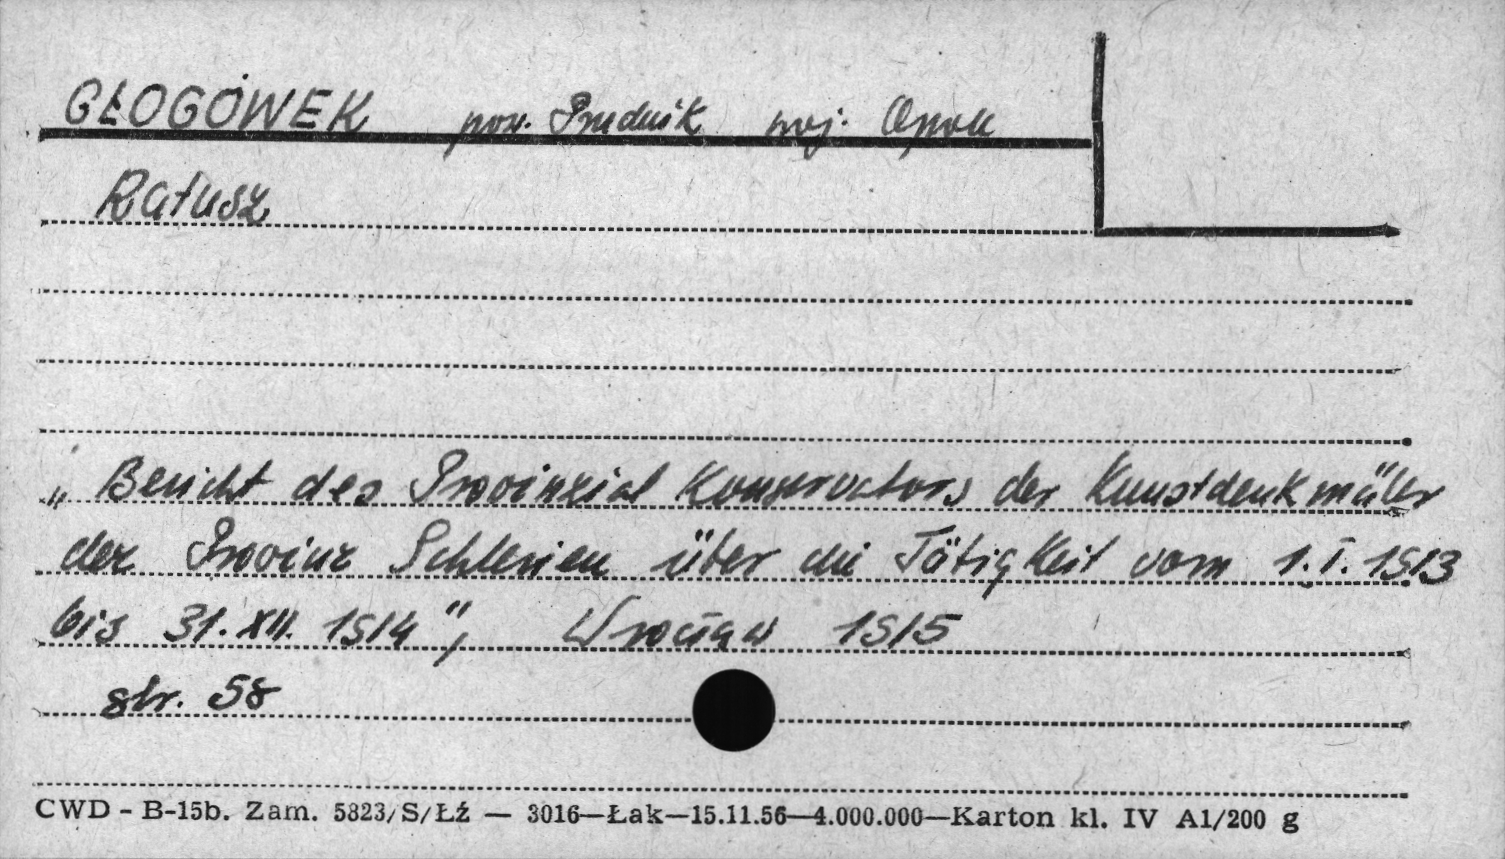 GŁOGÓWEK pow. Prudnik woj. Opole
Ratusz
„Bericht des Provinzial Konservators der Kunstdenkmäler
der Provinz Schlesien über die Tätigkeit vom 1.I.1913
bis 31.XII.1914", Wrocław 1915
str. 58
CWD - B-15b. Zam. 5823/S/ŁŹ — 3016—Łak—15.11.56—4.000.000—Karton kl. IV A1/200 g